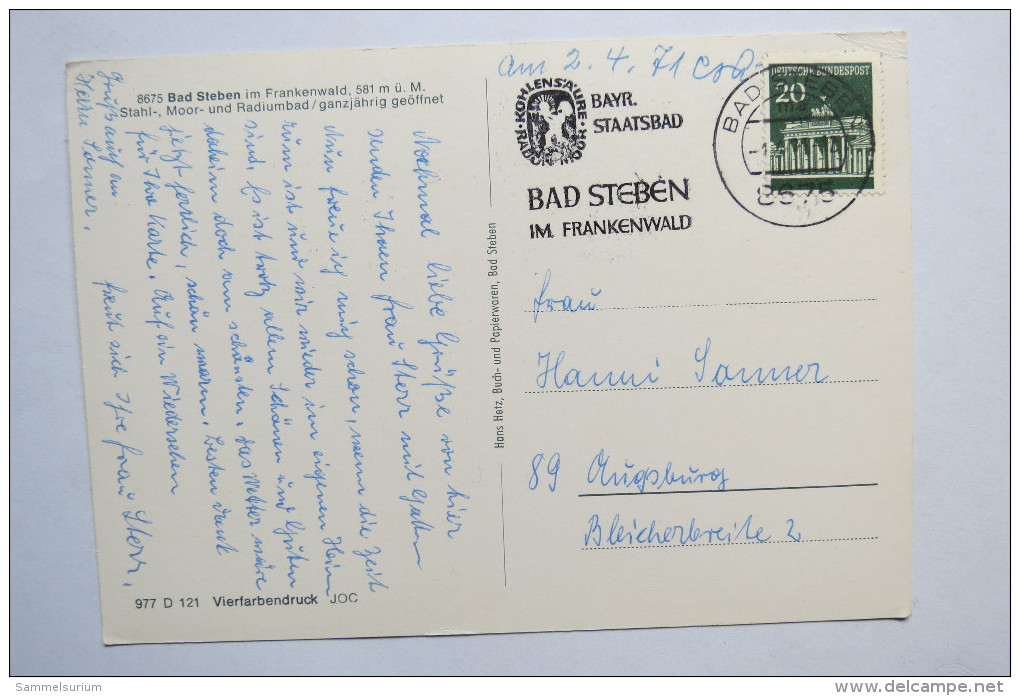 8675 Bad Steben im Frankenwald, 581 m ü. M.
Stahl-, Moor- und Radiumbad/ganzjährig geöffnet
Nochmal liebe Grüße von hier
senden Ihnen Frau Sterr mit Gatten
Nun freue ich mich schon, wenn die Zeit
rum ist und wir wieder im eigenen Heim
sind. Es ist trotz allem Schönen und Guten
daheim doch am schönsten. Das Wetter wäre
jetzt herrlich, schön warm. Besten Dank
für Ihre Karte. Auf ein Wiedersehen
freut sich Ihre Frau Sterr.
Gruß auch an
Herrn Sanner.
977 D 121 Vierfarbendruck JOC
Hans Hetz, Buch- und Papierwaren, Bad Steben
am 2. 4. 71
KOHLENSÄURE · MOOR · RADON
BAYR.
STAATSBAD
BAD STEBEN
IM FRANKENWALD
BAD STEBEN
8675
DEUTSCHE BUNDESPOST
20
Frau
Hanni Sanner
89 Augsburg
Bleicherbreite 2
Sammelsurium
delcampe.net